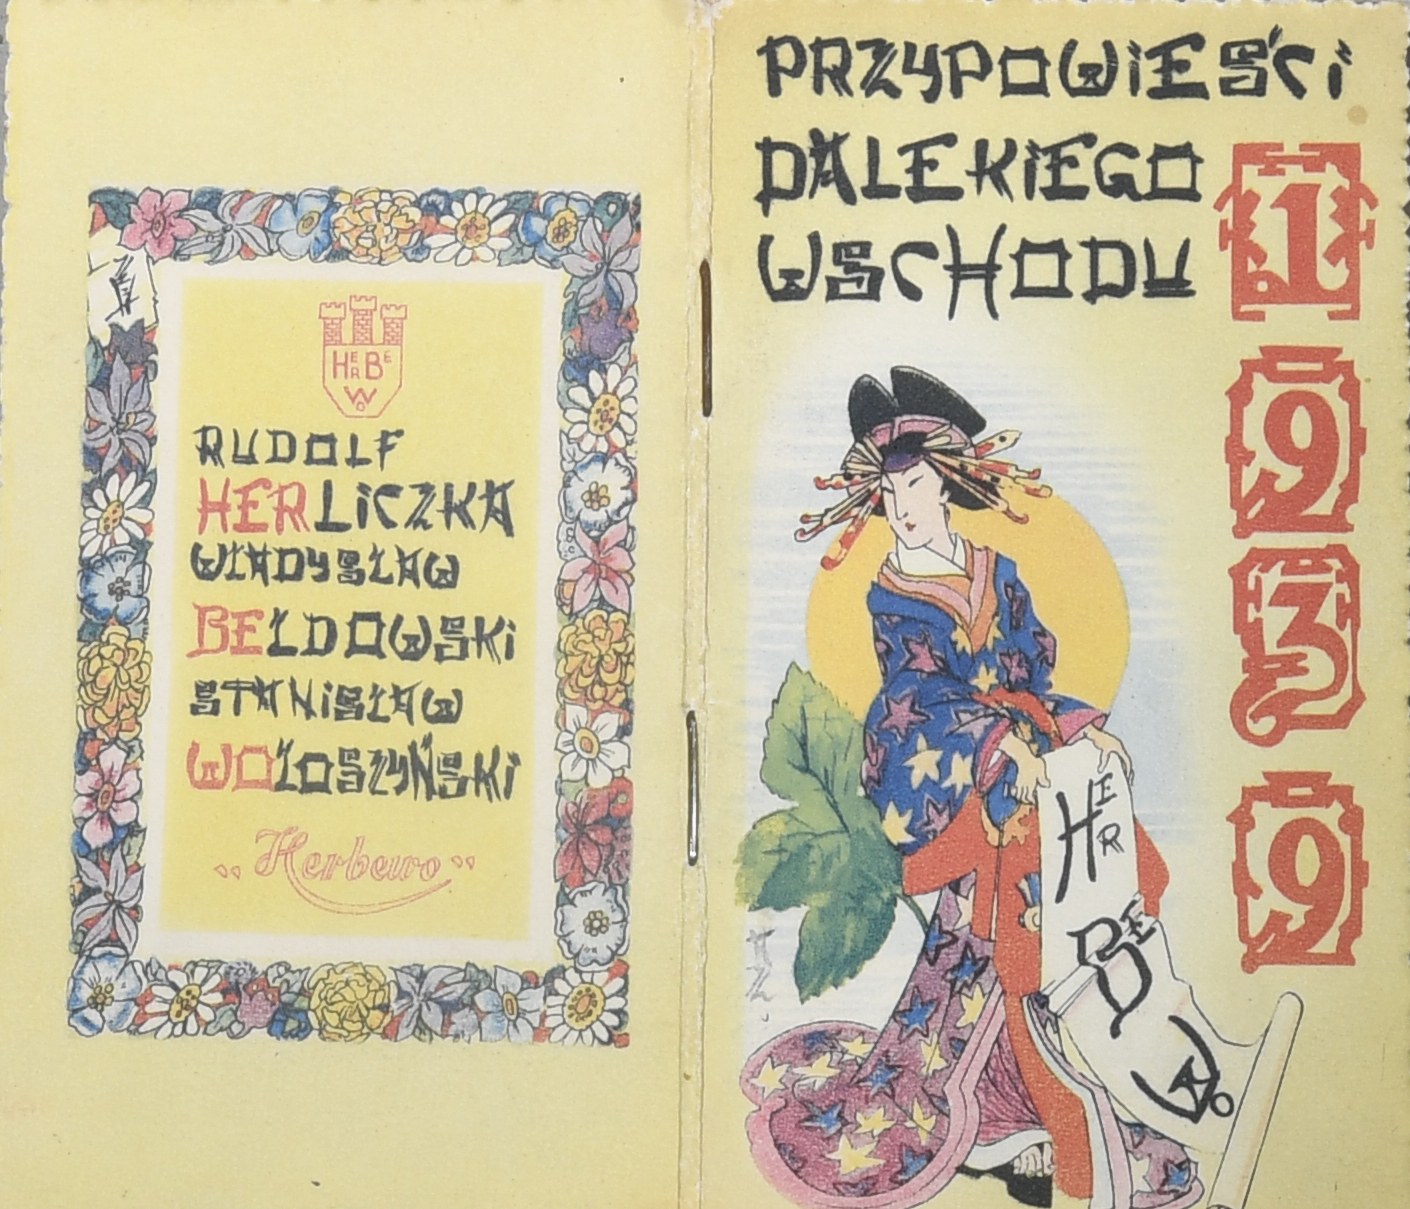 HERBE
Wo
RUDOLF
HERLICZKA
WŁADYSŁAW
BEŁDOWSKI
STANISŁAW
WOŁOSZYŃSKI
„Herbewo”
PRZYPOWIEŚCI
DALEKIEGO
WSCHODU
1939
HER
BE
Wo